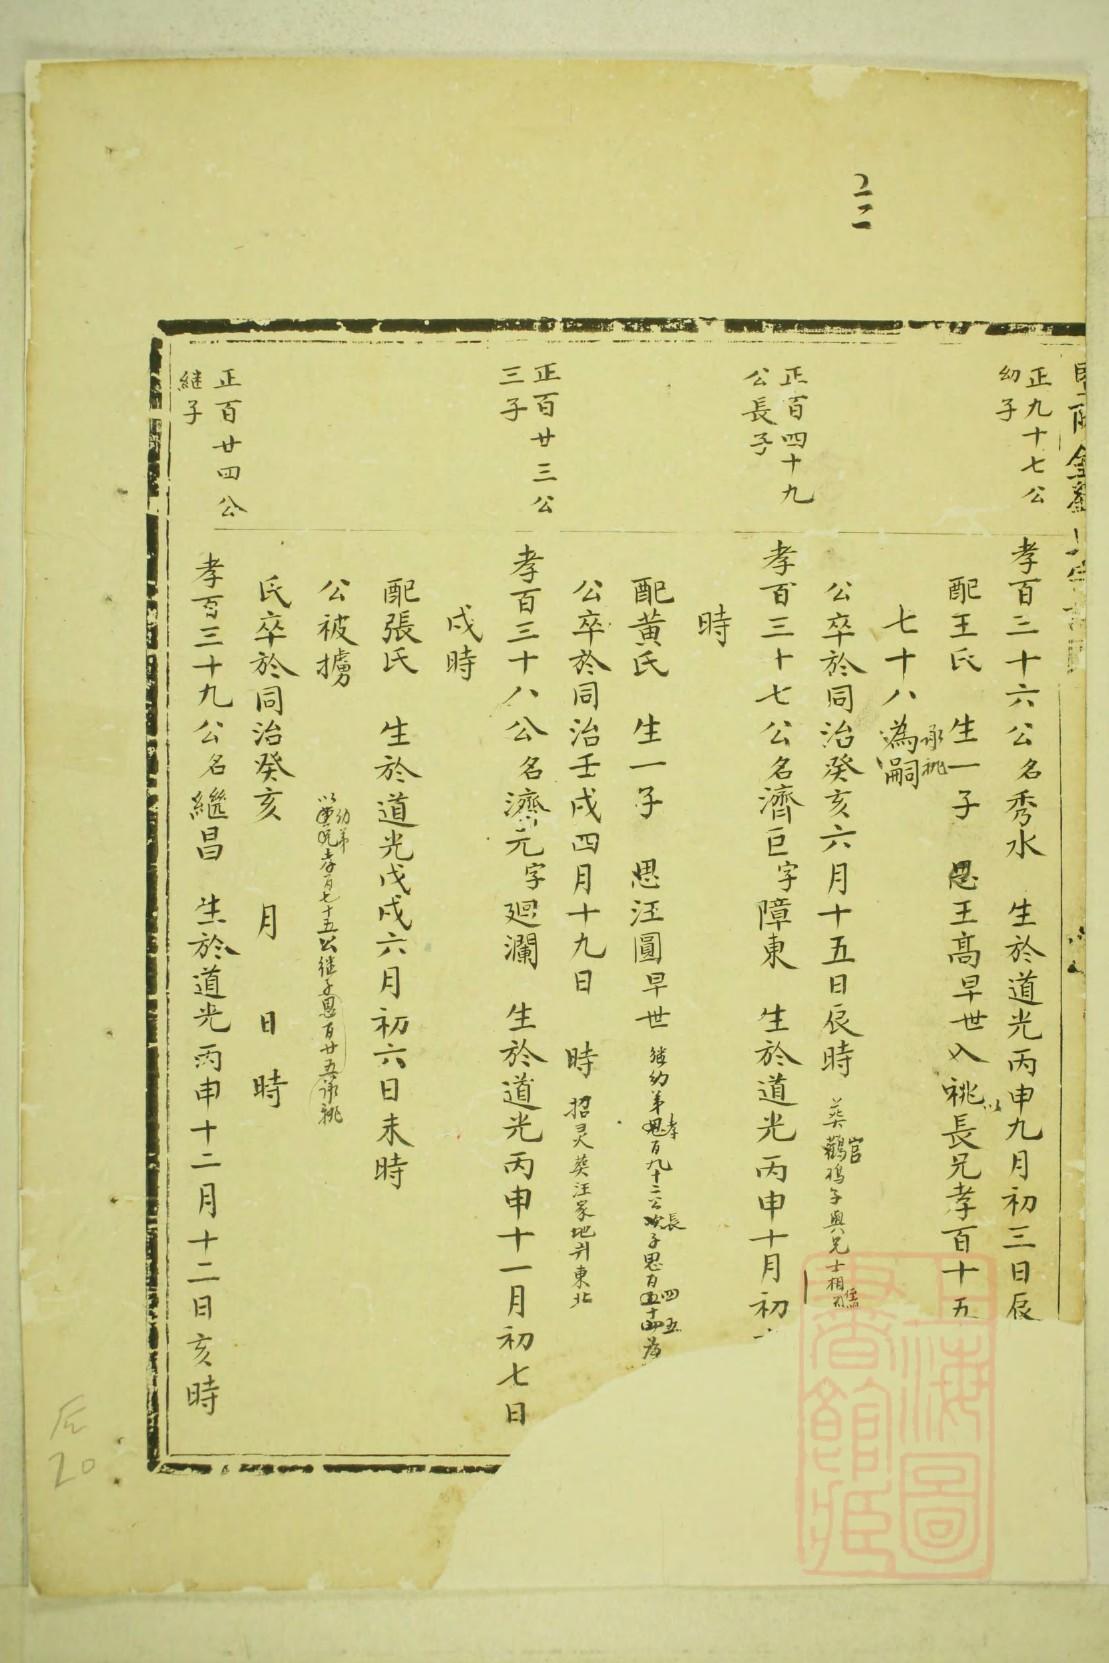 正九十七公
幼子
孝百三十六公名秀水 生於道光丙申九月初三日辰
配王氏 生一子 思王高早世入祧以長兄孝百十五
承祧
七十八為嗣
公卒於同治癸亥六月十五日辰時
正百四十九
公長子
孝百三十七公名濟巨字障東 生於道光丙申十月初
時
配黃氏 生一子 思汪圓早世
公卒於同治壬戌四月十九日 時 招灵葬汪家地
正百廿三公
三子
孝百三十八公名濟元字廻瀾 生於道光丙申十一月初七日
戌時
配張氏 生於道光戊戌六月初六日未時
公被擄
以幼弟孝百七十五公继子思百廿五承祧
氏卒於同治癸亥 月 日 時
正百廿四公
継子
孝百三十九公名繼昌 生於道光丙申十二月十二日亥時
上海圖
書館藏
20